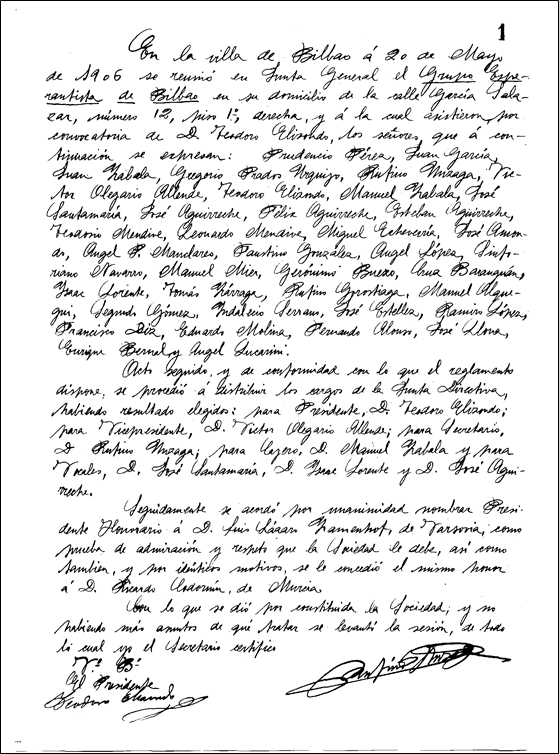 1
En la villa de Bilbao á 20 de Mayo
de 1906 se reunió en Junta General el Grupo Espe-
rantista de Bilbao en su domicilio de la calle García Sala-
zar, número 12, piso 1º, derecha, y á la cual asistieron, por
convocatoria de D. Teodoro Elizondo, los señores que á con-
tinuación se expresan: Prudencio Pérez, Juan García,
Juan Zabala, Gregorio Prado Urquijo, Rufino Unzaga, Vic-
tor Olegario Allende, Teodoro Elizondo, Manuel Zabala, José
Santamaría, José Aguirreche, Félix Aguirreche, Esteban Aguirreche,
Mendive, Leonardo Mendive, Miguel Echevarría, José
Angel P. Manclares, Faustino González, Angel López, Sinfo-
riano Navarro, Manuel Mier, Gerónimo Bueno, Cruz Baranguán,
Isaac Lorente, Tomás Zárraga, Rufino Gorostiaga, Manuel Algue-
gui, Segundo Gómez, Indalecio Serrano, José Estellez, Ramiro López,
Francisco Diz, Eduardo Molina, Fernando Alonso, José Llona,
Enrique Bernal y Angel Lucarini.
Acto seguido, y de conformidad con lo que el reglamento
dispone, se procedió á distribuir los cargos de la Junta Directiva,
habiendo resultado elegidos: para Presidente, D. Teodoro Elizondo;
para Vicepresidente, D. Victor Olegario Allende; para Secretario,
D. Rufino Unzaga; para Cajero, D. Manuel Zabala y para
Vocales, D. José Santamaría, D. Isaac Lorente y D. José Agui-
rreche.
Seguidamente se acordó por unanimidad nombrar Presi-
dente Honorario á D. Luis Lázaro Zamenhof, de Varsovia, como
prueba de admiración y respeto que la Sociedad le debe, así como
tambien, y por idénticos motivos, se le concedió el mismo honor
á D. Ricardo Codorníu, de Murcia.
Con lo que se dió por constituida la Sociedad; y no
habiendo más asuntos de qué tratar se levantó la sesión, de todo
lo cual yo el Secretario certifico
Vº Bº
El Presidente
Teodoro Elizondo